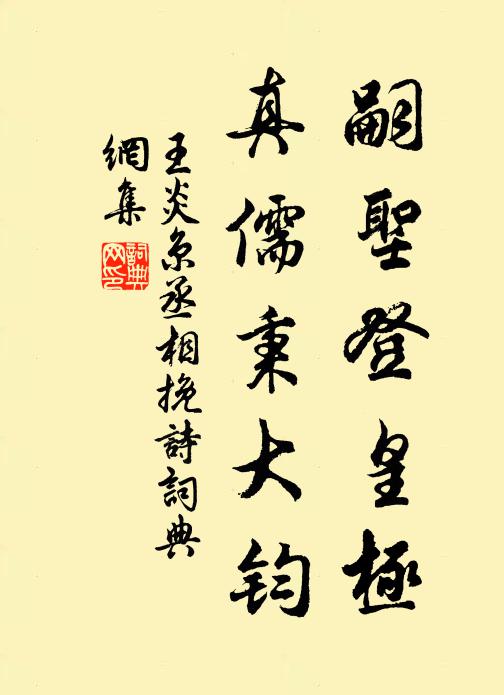 嗣聖登皇極
真儒秉大钧
王炎京丞相挽詩詞典
網集
詞典
网印